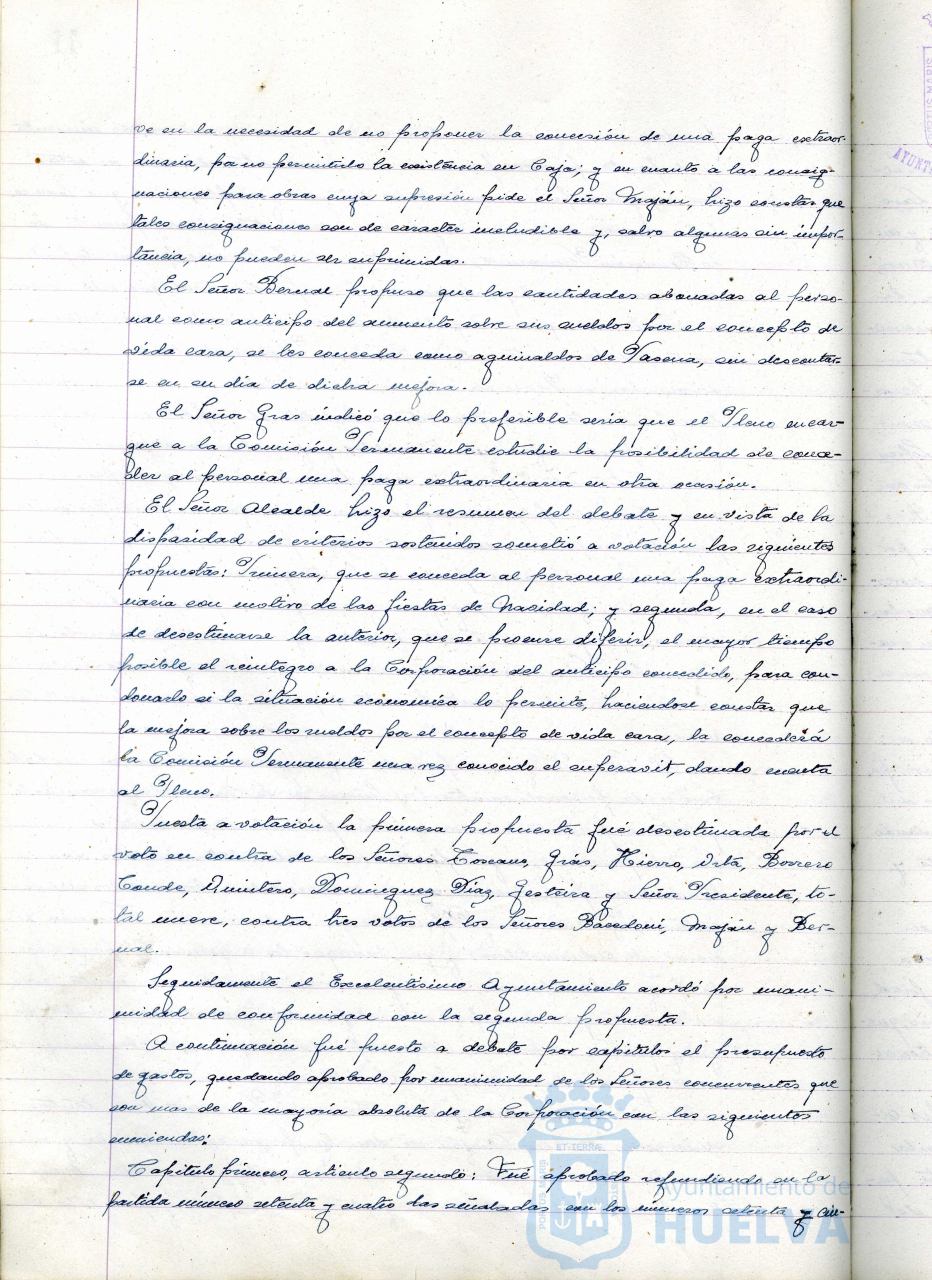 ve en la necesidad de no proponer la concesión de una paga extraor-
dinaria, por no permitirlo la existencia en Caja; y en cuanto a las consig-
naciones para obras cuya supresión pide el Señor Maján, hizo constar que
tales consignaciones son de caracter ineludible y, salvo algunas sin impor-
tancia, no pueden ser suprimidas.
El Señor Bernal propuso que las cantidades abonadas al perso-
nal como anticipo del aumento sobre sus sueldos por el concepto de
vida cara, se les conceda como aguinaldos de Pascua, sin descontar-
se en su día de dicha mejora.
El Señor Gras indicó que lo preferible sería que el Pleno encar-
gue a la Comisión Permanente estudie la posibilidad de conce-
der al personal una paga extraordinaria en otra ocasión.
El Señor Alcalde hizo el resumen del debate y en vista de la
disparidad de criterios sostenidos sometió a votación las siguientes
propuestas: Primera, que se conceda al personal una paga extraordi-
naria con motivo de las fiestas de Navidad; y segunda, en el caso
de desestimarse la anterior, que se procure diferir, el mayor tiempo
posible el reintegro a la Corporación del anticipo concedido, para con-
donarlo si la situación económica lo permite, haciendose constar que
la mejora sobre los sueldos por el concepto de vida cara, la concederá
la Comisión Permanente una vez conocido el superavit, dando cuenta
al Pleno.
Puesta a votación la primera propuesta fué desestimada por el
voto en contra de los Señores Toscano, Grás, Hierro, Orta, Borrero
Conde, Quintero, Dominguez Díaz, Gesteira y Señor Presidente, to-
tal nueve, contra tres votos de los Señores Bacedoni, Maján y Ber-
nal.
Seguidamente el Excelentísimo Ayuntamiento acordó por unani-
midad de conformidad con la segunda propuesta.
A continuación fué puesto a debate por capitulos el presupuesto
de gastos, quedando aprobado por unanimidad de los Señores concurrentes que
son mas de la mayoría absoluta de la Corporación con las siguientes
enmiendas:
Capitulo primero, articulo segundo: Fué aprobado refundiendo en la
partida número setenta y cuatro las señaladas con los numeros setenta y cin-
Ayuntamiento de
HUELVA